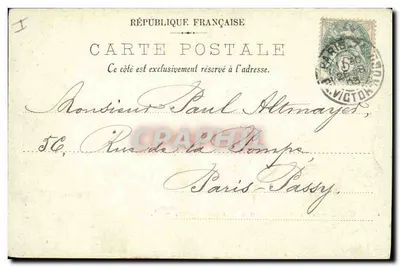 I
RÉPUBLIQUE FRANÇAISE
CARTE POSTALE
Ce côté est exclusivement réservé à l'adresse.
Monsieur Paul Altmayer
56, Rue de la Pompe
Paris-Passy.
PARIS
VICTOR